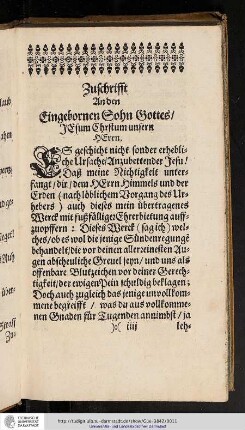 Zuschrifft
An den
Eingebornen Sohn Gottes/
JEsum Chrstum unsern
HEren.
ES geschicht nicht sonder erhebli-
che Ursache/Anzubettender Jesu/
Daß meine Nichtigkeit unter-
fangt/dir/dem HErrn Himmels und der
Erden (nach löblichem Vorgang des Ur-
hebers) auch dieses mein übertragenes
Werck mit fußfälliger Ehrerbietung auff-
zuopffern: Dieses Werck (sag ich) wel-
ches/ob es wol die jenige Sünden rüge
behandelt/die vor deinen allerreinsten Au-
gen abscheuliche Greuel seyn/und uns als
offenbare Blutzeichen vor deiner Gerech-
tigkeit/der ewigen Pein schuldig beklagen;
Doch auch zugleich das jenige unvollkom-
mene begreifft/ was du aus vollkomme-
nen Gnaden für Tugenden annimbst/ ja
):( iiij
leh-